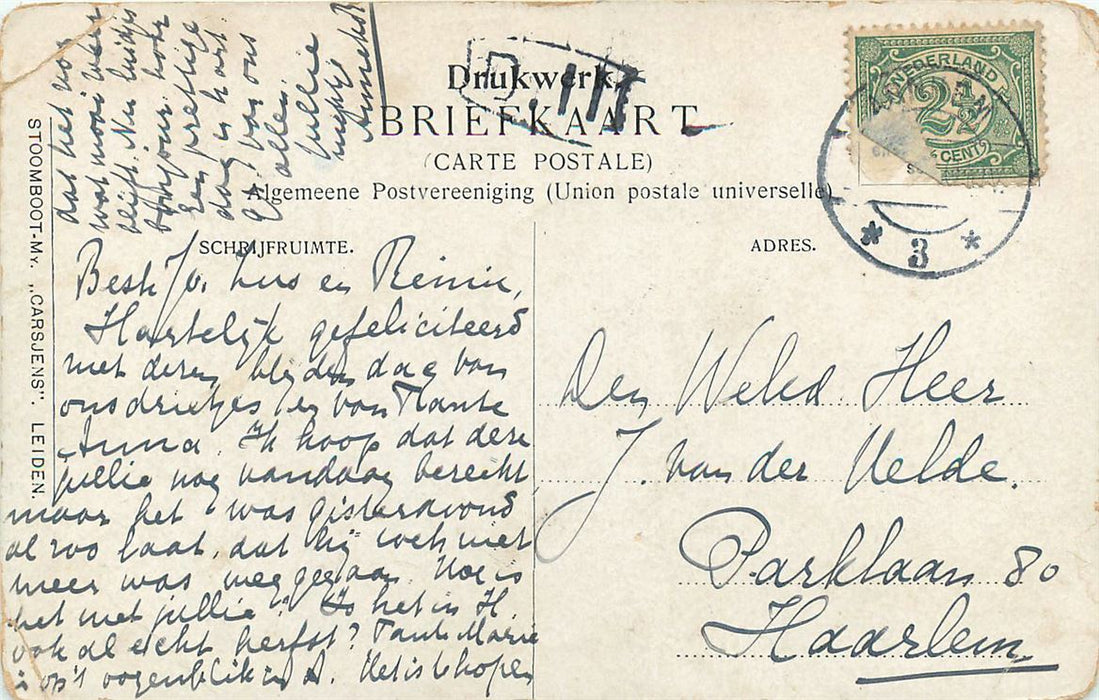 Drukwerk.
BRIEFKAART
(CARTE POSTALE)
Algemeene Postvereeniging (Union postale universelle)
SCHRIJFRUIMTE.
ADRES.
STOOMBOOT-My. „CARSJENS". LEIDEN.
NEDERLAND
2½
CENT
3
Beste Jo, en Reinie,
Hartelijk gefeliciteerd
met dezen blijden dag van
ons drietjes en van Tante
Anna. Ik hoop dat deze
jullie nog vandaag bereikt
maar het was gisteravond
al zoo laat, dat hij toch niet
meer was weggegaan. Hoe is
het met jullie? Is het in H.
ook al echt herfst? Tante Marie
is op 't oogenblik in A. Het is te hopen
dat het nog
wat mooi weer
blijft. Nu luitjes
bonjour hoor
Een prettige
dag en hart.
gr. van ons
allen.
Jullie
nichtje
Annehof
Den Weled. Heer
J. van der Velde.
Parklaan 80
Haarlem